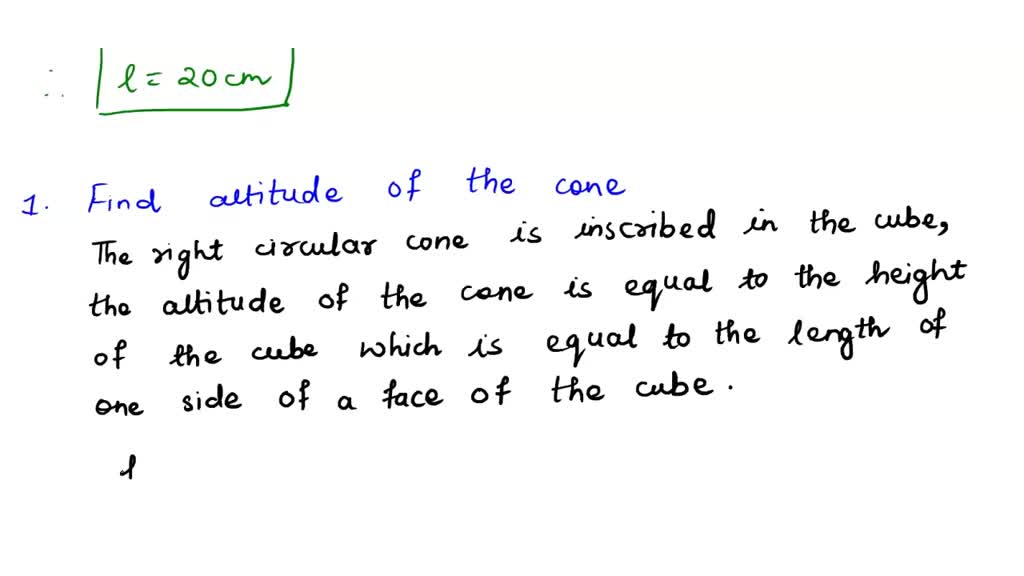 ∴ l = 20 cm
1. Find altitude of the cone
The right circular cone is inscribed in the cube,
the altitude of the cone is equal to the height
of the cube which is equal to the length of
one side of a face of the cube.
l